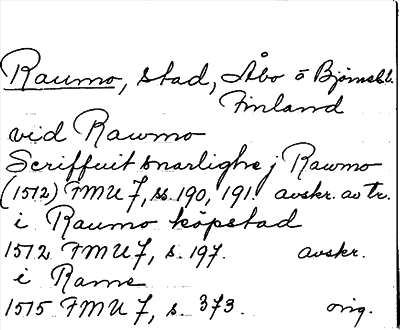 Raumo, stad, Åbo o Björneb.l.
Finland
vid Rawmo
Scriffuit snarlighe j Rawmo
(1512) FMU 7, ss. 190, 191. avskr. av tr.
i Raumo köpstad
1512 FMU 7, s. 197. avskr.
i Rame
1515 FMU 7, s. 373. orig.